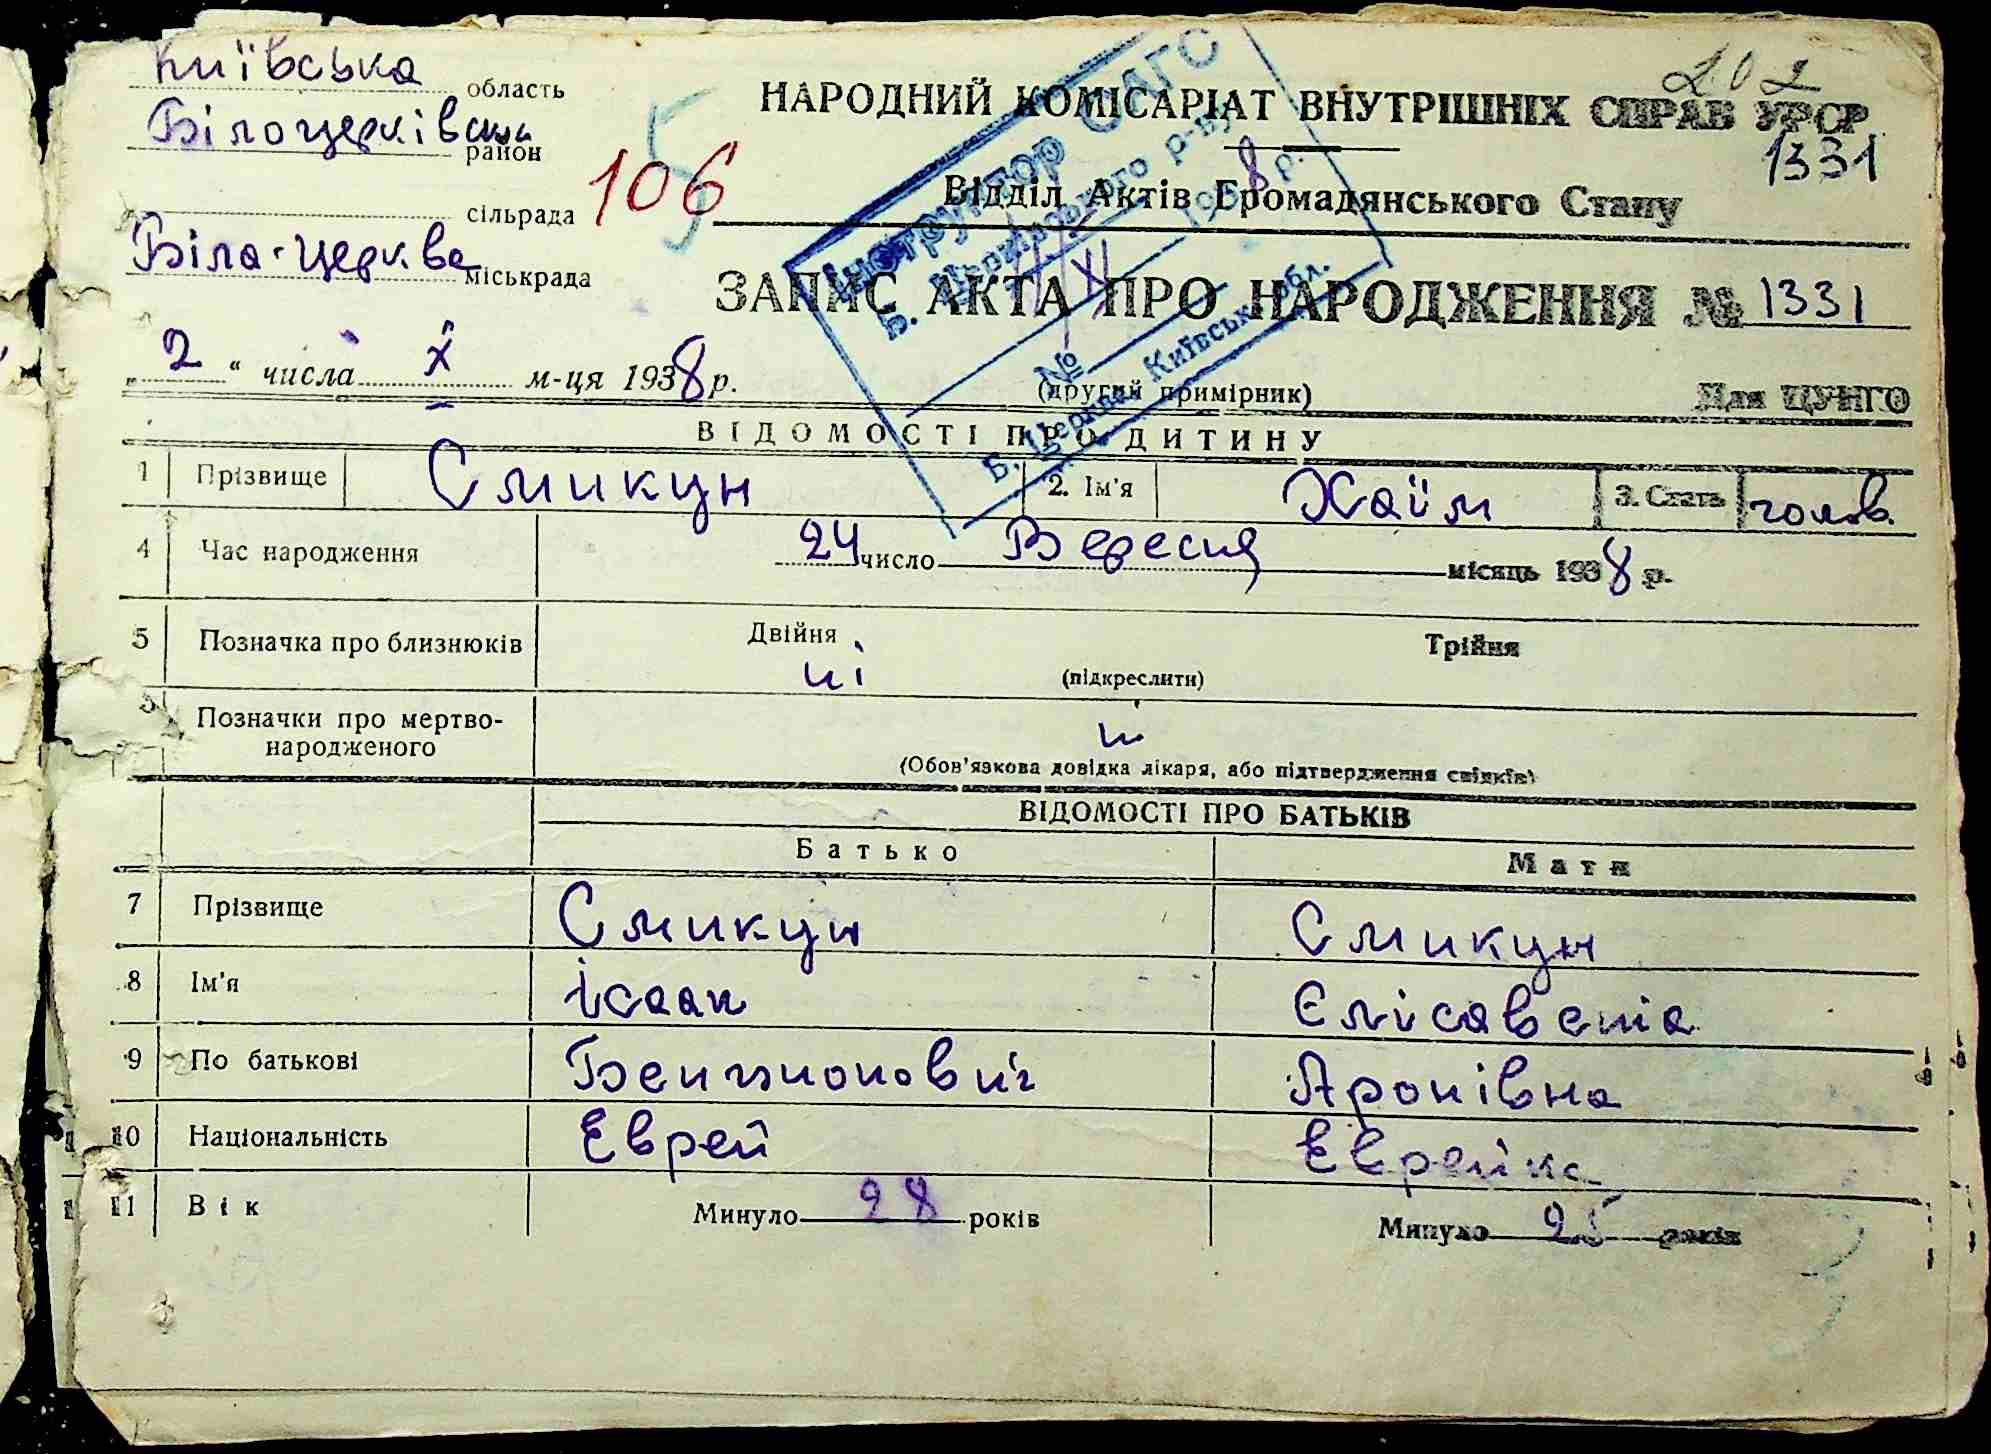 Київська область
Білоцерківськ район
сільрада
Біла-Церква міськрада
106
202
НАРОДНИЙ КОМІСАРІАТ ВНУТРІШНІХ СПРАВ УРСР
1331
Відділ Актів Громадянського Стану
ЗАПИС АКТА ПРО НАРОДЖЕННЯ № 1331
„ 2 “ числа X м-ця 1938 р.
(другий примірник)
Для ЦУНГО
Інструктор ЗАГС
Б. Церківського р-ну
XI 1938 р.
№
Б. Церква, Київськ. обл.
ВІДОМОСТІ ПРО ДИТИНУ
1 Прізвище Смикун 2. Ім'я Хаїм 3. Стать голов.
4 Час народження 24 число Вересня місяць 1938 р.
5 Позначка про близнюків Двійня Трійня
ні (підкреслити)
Позначки про мертво-
народженого
(Обов'язкова довідка лікаря, або підтвердження свідків)
ВІДОМОСТІ ПРО БАТЬКІВ
Батько Мати
7 Прізвище Смикун Смикун
8 Ім'я Ісаак Єлісавета
9 По батькові Бенционович Аронівна
10 Національність Еврей Еврейка
11 Вік Минуло 28 років Минуло 25 років